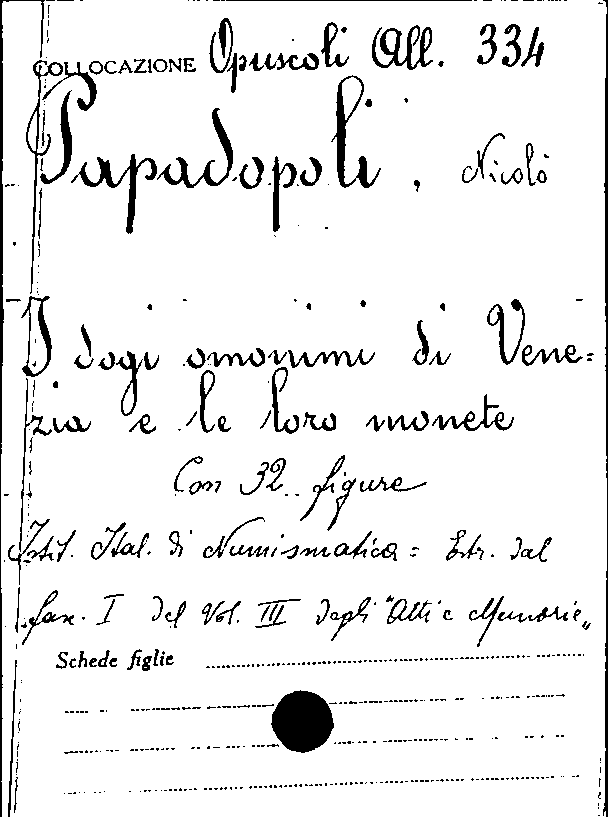 COLLOCAZIONE Opuscoli All. 334
Papadopoli, Nicolò
I dogi omonimi di Vene=
zia e le loro monete
Con 32 figure
Istit. Ital. di Numismatica = Estr. dal
fasc. I del Vol. III degli "Atti e Memorie"
Schede figlie